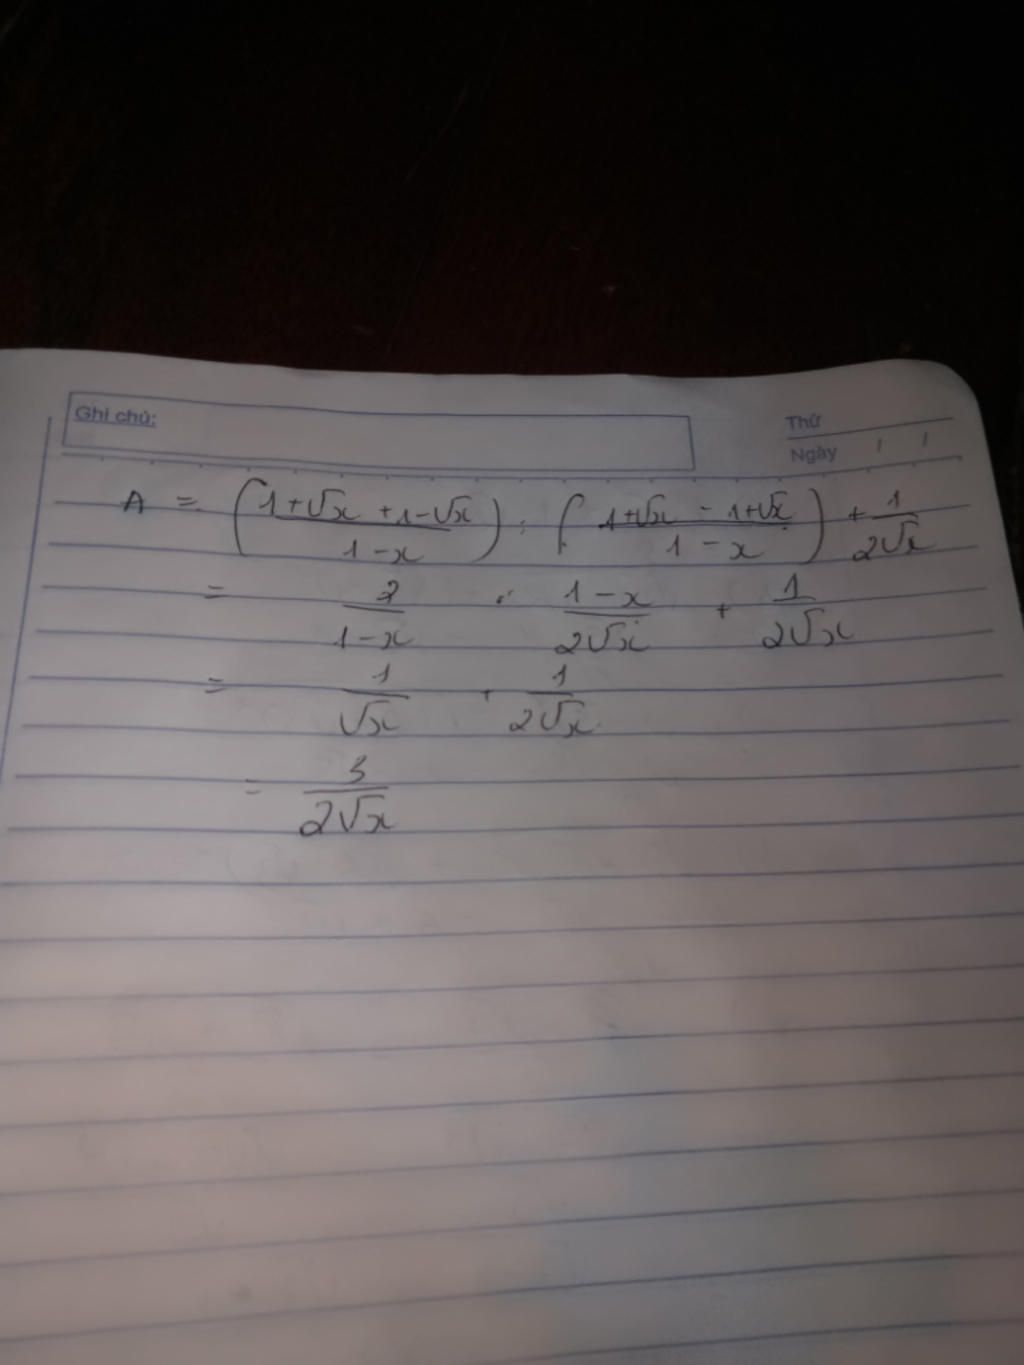 Ghi chú:
Thứ
Ngày / /
A = ( (1+√x + 1-√x) / (1-x) ) : ( (1+√x - 1+√x) / (1-x) ) + 1 / (2√x)
= 2 / (1-x) . (1-x) / (2√x) + 1 / (2√x)
= 1 / √x + 1 / (2√x)
= 3 / (2√x)